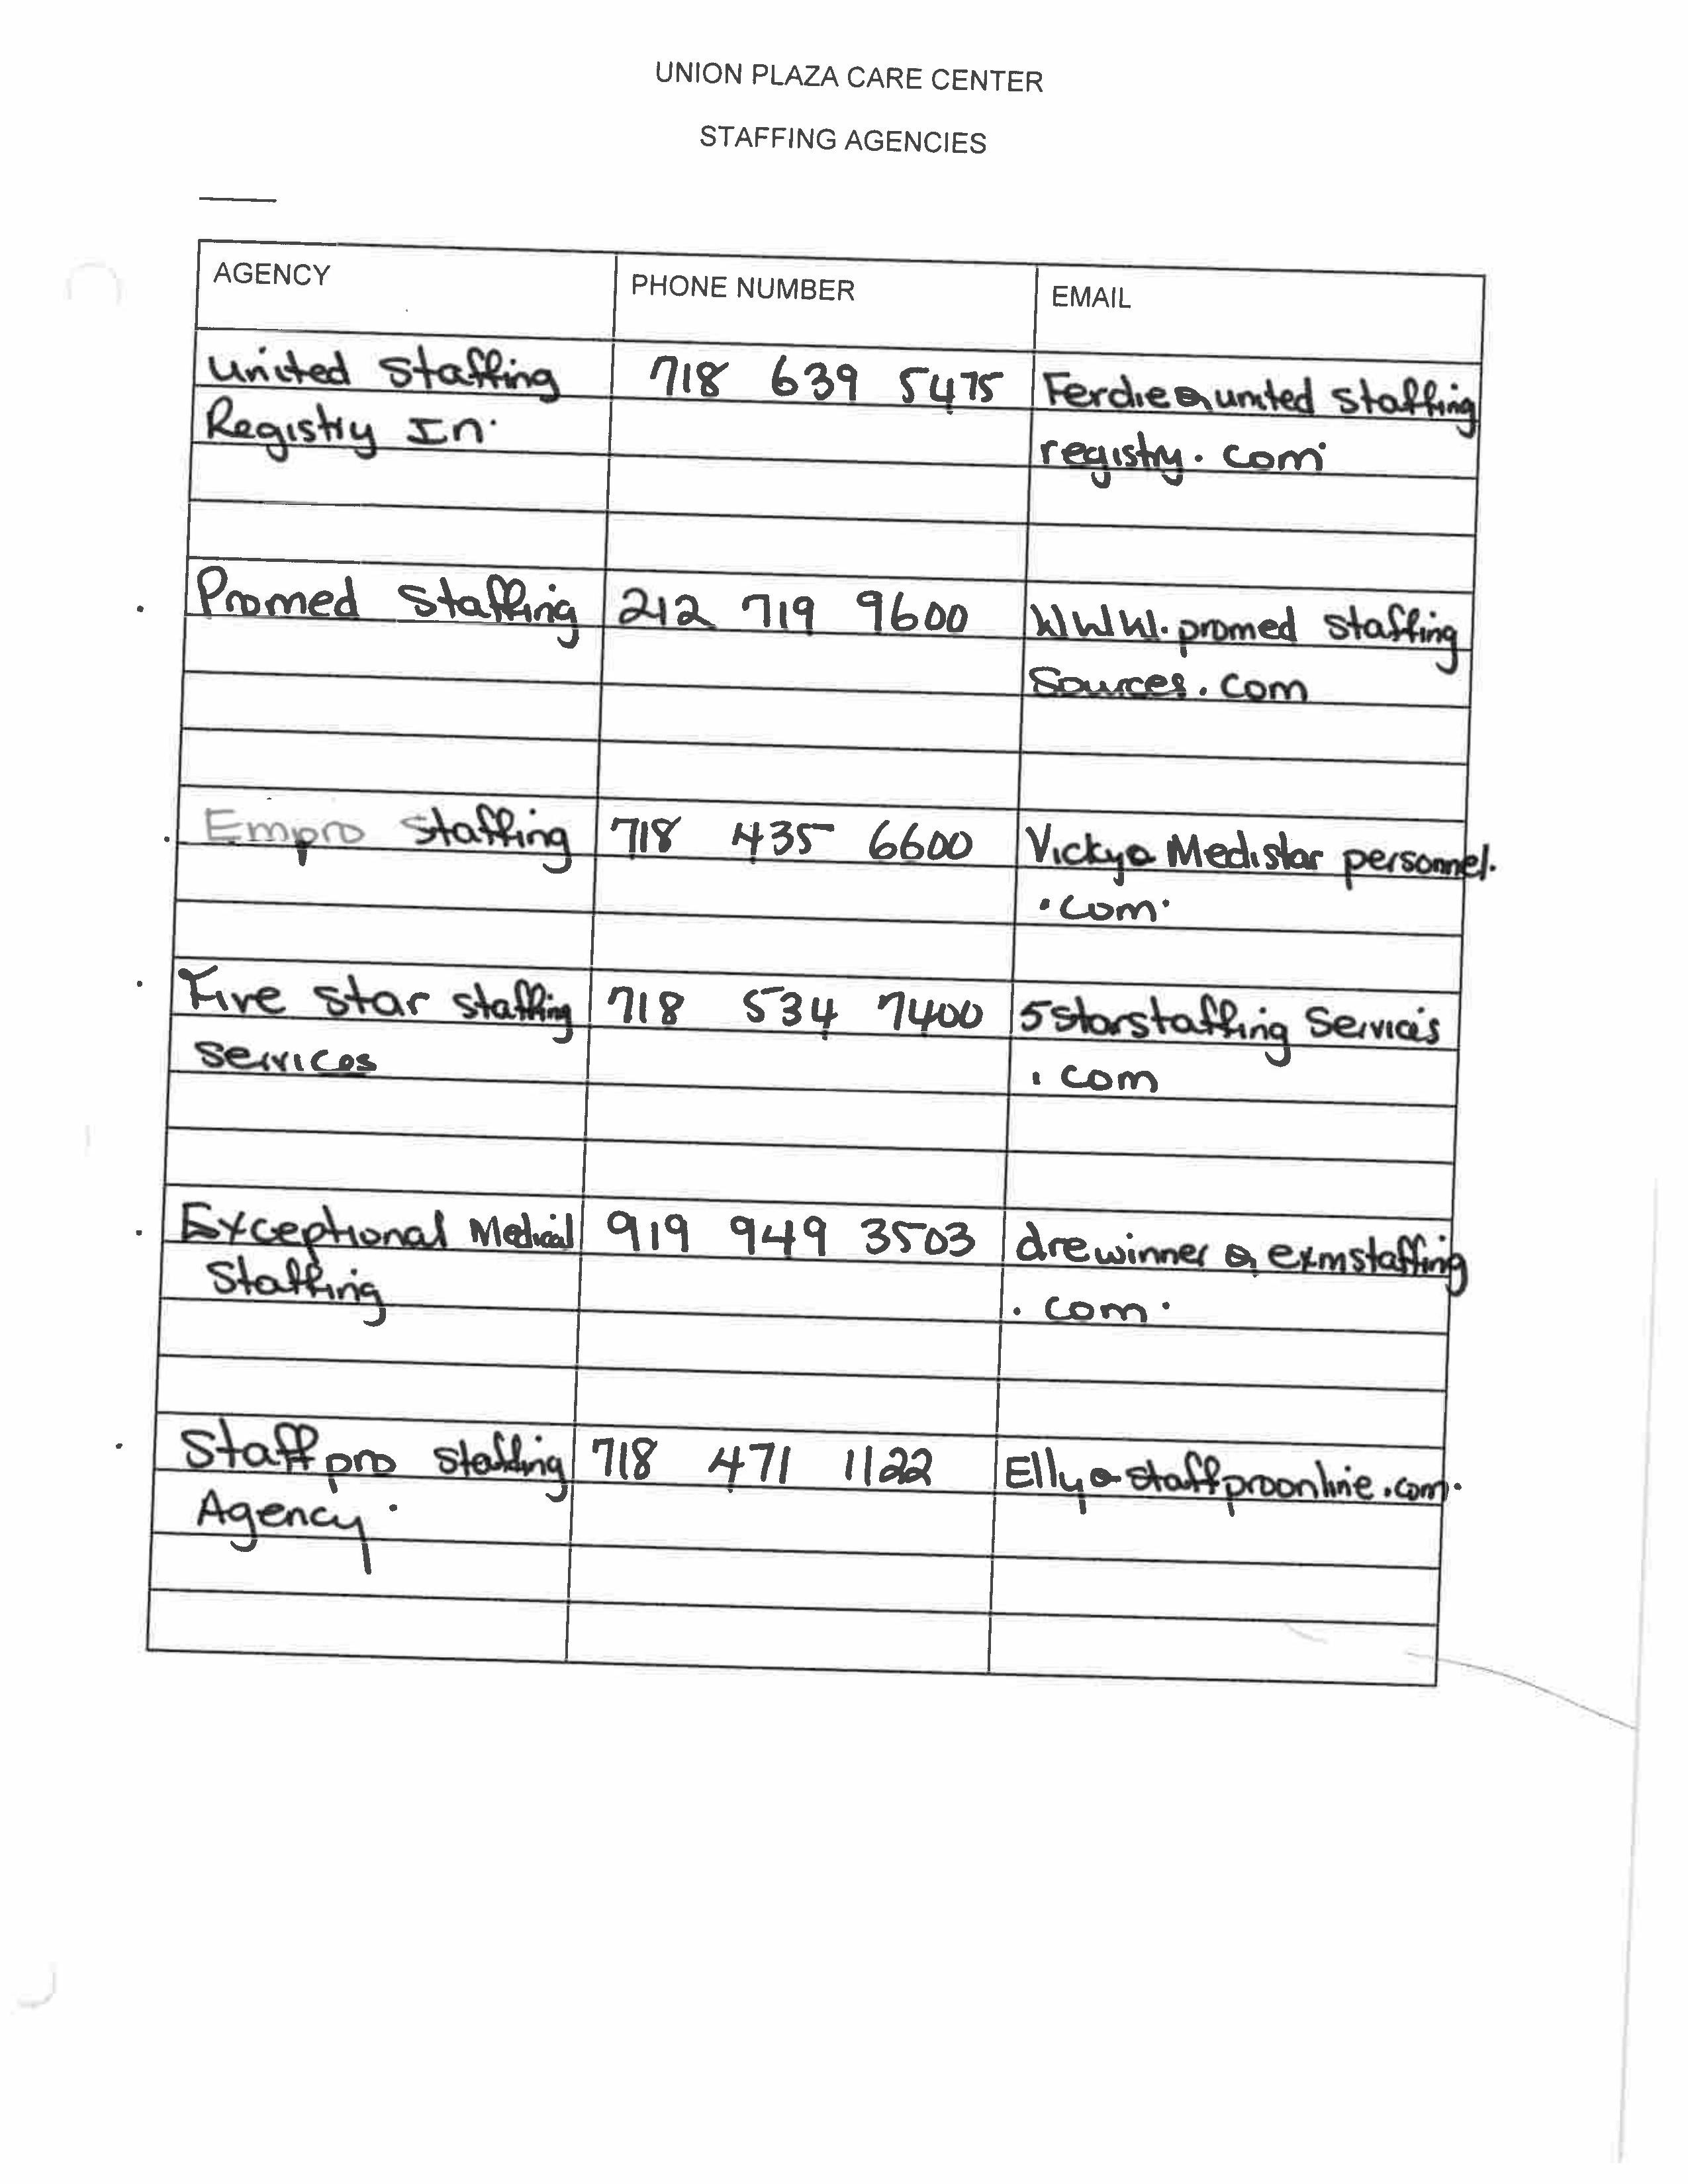 UNION PLAZA CARE CENTER
STAFFING AGENCIES
AGENCY PHONE NUMBER EMAIL
United Staffing 718 639 5475 Ferdie@united staffing
Registry In. registry.com
Promed Staffing 212 719 9600 WWW.promed staffing
Sources.com
Empro Staffing 718 435 6600 Vicky@Medistar personnel.
.com.
Five Star staffing 718 534 7400 5starstaffing Services
services .com
Exceptional Medical 919 949 3503 drewinner @ exmstaffing
Staffing .com.
Staffpro Staffing 718 471 1122 Elly@staffproonline.com.
Agency.